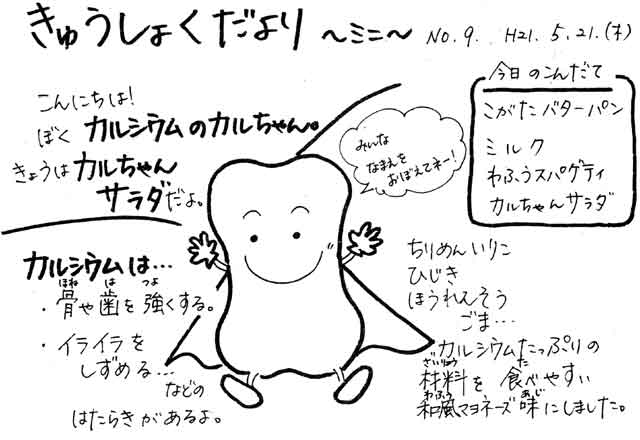 きゅうしょくだより ～ミニ～ No.9. H21.5.21.(木)
今日のこんだて
こがたバターパン
ミルク
わふうスパゲティ
カルちゃんサラダ
こんにちは!
ぼく カルシウムのカルちゃん。
きょうは カルちゃん
サラダだよ。
みんな
なまえを
おぼえてネー!
カルシウムは…
・骨や歯を強くする。
ほね は つよ
・イライラを
しずめる…
などの
はたらきがあるよ。
ちりめんいりこ
ひじき
ほうれんそう
ごま…
カルシウムたっぷりの
ざいりょう た
材料を 食べやすい
わふう あじ
和風マヨネーズ味にしました。